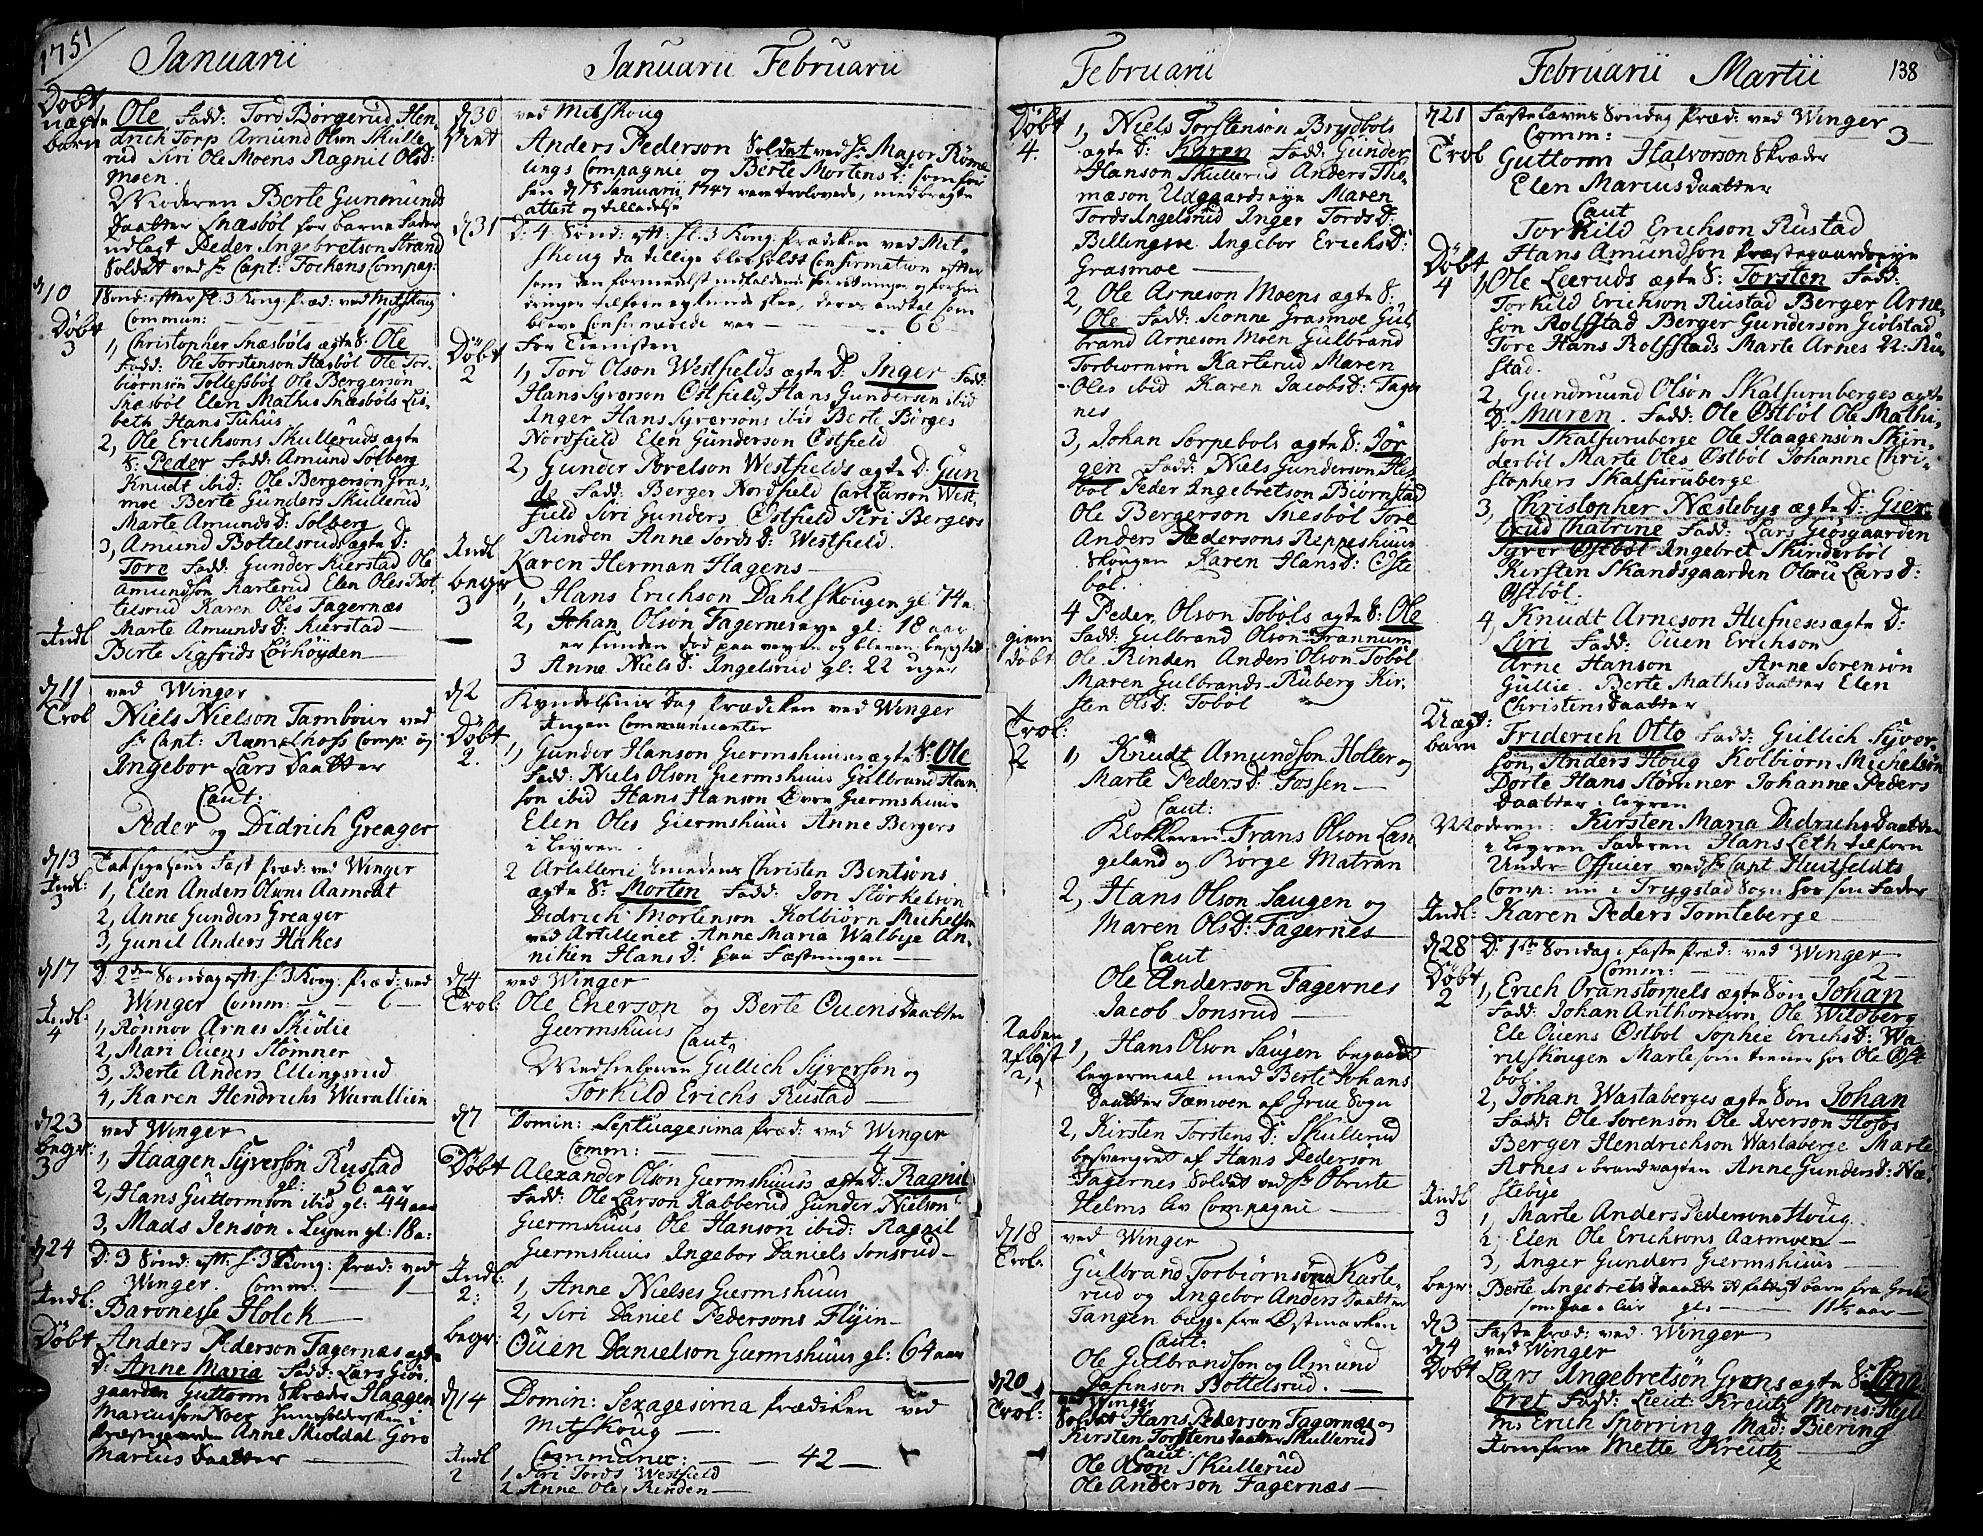 1751
Januarii
Döbt
uægte
barn
Ole Fadd: Tord Börgerud Hen
drich Torp Amund Olsøn Skulle
rud Siri Ole Moens Ragnil Olsd:
Moen.
Moderen Berte Gunmunds
Daatter Snæsböl for barne Fader
udlagt Peder Ingebretson Strand
Soldat ved Hr Capt: Fockens Compag:
d/10
1 Sond: efter H: 3 Kong: Præd: ved Mitskoug
Commun:
Döbt
3
1, Christopher Snæsböls ægte S: Ole
Fadd: Ole Torstenson Hæsböl Ole Tor-
biornsøn Tollefsböl Ole Bergerson
Snæsböl Elen Mathis Snæsböls Lis-
beth Hans Tuhus
2, Ole Erichsons Skulleruds ægte
S: Peder Fadd: Amund Solberg
Knudt ibid: Ole Bergerson Gras-
moe Berte Gunders Skullerud
Marte Amunds D: Solberg
3, Amund Bottelsruds ægte D:
Tore Fadd: Gunder Kierstad Ole
Amundsøn Karterud Elen Oles Bot-
telsrud Karen Oles Fagernæs
Marte Amunds D: Kierstad
Indl
Berte Sigfrids Lövhöyden
d/11
Trol
ved Winger
Niels Nielson Tambour ved
Hr Capt: Ramelhofs Comp: og
Ingebor Lars Daatter
Caut:
Peder og Didrich Greager
d/13
Taksigelsens Fæst Præd: ved Winger
Indl:
3
1, Elen Anders Olsons Aamodt
2, Anne Gunders Greager
3, Gunil Anders Hakes
d/17
D: 2den Søndag efft: H: 3 Kong: Præd: ved
Winger Comm: 6
Indl:
4
1, Ronnov Arnes Skiödie
2, Mari Ouens Stömner
3, Berte Anders Ellingsrud
4, Karen Hendrichs Wurallien
d/23
begr:
3
ved Winger
1, Haagen Syversön Rustad
gl: 56 aar
2, Hans Guttormson ibid gl: 44 aar
3, Mads Jenson i Leyren gl: 18 a:
d/24
D: 3 Sönd: efft: H: 3 Kong: Præd: ved
Winger Comm: 1
Indl:
Baronesse Holck
Döbt
Anders Pederson Fagernæs ægte
D: Anne Maria Fadd: Lars Giös-
gaarden Guttorm Skræder Haagen
Marcussøn Noer Huusholdersken i
Præstegaarden Anne Skioddal Goro
Marcus Daatter
Januarii Februarii
d/30
Viet
ved Mitskoug
Anders Pederson Soldat ved Hr Major Röme
lings Compagnie og Berte Mortens D: som for
hen d/15 Januarii 1747 vare trolovede, medbragte
attest og tilladelse
d/31
D: 4 Sönd: efft: H: 3 Kong: Prædiken ved Mit-
skoug da tillige blev holdt Confirmation efter
som den formedelst
bleve Confirmerede var 66
Döbt
2
for Tiemsten
1, Tord Olson Westfields ægte D: Inger Fadd:
Hans Syverson Ostfield, Hans Gunderson ibid
Inger Hans Syversons ibid Berte Börges
Nordfield Elen Gunderson Ostfield
2, Gunder Borelson Westfields ægte D: Gun
de Fadd: Berger Nordfield Carl Larson West-
field Siri Gunders Ostfield Siri Bergers
Rinden Anne Tords D: Westfield.
Indl
Karen Herman Hagens
begr
3
1, Hans Erichson Dahl Skougen gl 74 a
2, Johan Olson Fagernes eye gl: 18 aar
er funden död paa veyen og bleven besigtet
3 Anne Niels D: Ingelsrud gl: 22 uger
d/2
Kyndelsmis Dag Prædiken ved Winger
Ingen Communicanter
Döbt
2.
1, Gunder Hanson Giermshuus ægte S: Ole
Fadd: Niels Olson Giermshuus Gulbrand Han
son ibid Hans Hanson Övre Giermshuus
Elen Oles Giermshuus Anne Bergers
i Leyren.
2 Artellerie Smedens Christen Bentsons
ægte S: Morten Fadd: Jon Störkelson
Didrich Mortenson Kolbiorn Michelson
ved Artilleriet Anne Maria Walbye An-
niken Hans D: paa Fæstningen
d/4
Trol
ved Winger
Ole Enerson og Berte Ouens Daatter
Giermshuus
Caut
Medhielperen Gullich Syverson og
Torkild Erichs Rustad
d/7
Domin: Septuagesima Præd: ved Winger
Comm: 4
Döbt
Alexander Olson Giermshuuses ægte D: Ragnil
Fadd: Ole Larson Kabberud Gunder Nielson
Giermshuus Ole Hanson ibid: Ragnil
Giermshuus Ingebor Daniels Jonsrud
Indl:
2:
1, Anne Nielses Giermshuus
2, Siri Daniel Pedersons Flyin
begr:
Ouen Danielson Giermshuus gl: 64 aar
d/14
Domin: Sexagesima Prædiken ved
Mitskoug
Communic: 42
Indl
2
1 Siri Tords Westfield
2 Anne Oles Rinden
Februarii
Döbt
4.
1, Niels Torstenson Brydbols
ægte D: Karen Fadd: Gunder
Hanson Skullerud Anders Tho-
mæson Udgaardseye Maren
Tords Ingelsrud Inger Tords D:
Billingmoe Ingebor Erichs D:
Grasmoe
2, Ole Arneson Moens ægte S:
Ole Fadd: Sionne Grasmoe Gul
brand Arneson Moen Gulbrand
Torbiornson Karterud Maren
Oles ibid Karen Jacobs D: Fager
nes
3, Johan Sorpebols ægte S: Jör
gen Fadd: Niels Gunderson Hes
bol Peder Ingebretson Biörnstad
Ole Bergerson Snesböl Tore
Anders Pedersons Reppeshuus
Skougen Karen Hans D: Oste
böl.
4 Peder Olson Tobols ægte S: Ole
giem
döbt
Fadd: Gulbrand Olson Frannum
Ole Rinden Anders Olson Toböl
Maren Gulbrands Ruberg Kir-
sten Ols D: Toböl
Trol:
2
1, Knudt Amundson Holter og
Marte Peders D: Fossen
Caut:
Klokkeren Frans Olson Lan
geland og Borge Matran
2, Hans Olson Saugen og
Maren Ols D: Fagernes
Caut
Ole Anderson Fagernes
Jacob Jonsrud
Aaben
aflöst
2,
1, Hans Olson Saugen begaaet
legermaal med Berte Johans
Daatter Tæmoen af Grue Sogn
2, Kirsten Torstens D: Skullerud
besvangret af Hans Pederson
Fagernes Soldat ved Hr Obriste
Helms Liv Compagni
d/18
Trol:
ved Winger
Gulbrand Torbiörnsönd Karte-
rud og Ingebor Anders Daatter
Tangen begge fra Östmarken
Caut:
Ole Gulbrandson og Amund
Bottelsrud.
d/20
Trol:
ved Winger
Soldat Hans Pederson Fagernæs og
Kirsten Torstens Daatter Skullerud
Caut:
Ole Olson Skullerud
Ole Anderson Fagernæs
Februarii Martii
138
d/21
Fastelavns Söndag Præd: ved Winger
Comm: 3
Trol
Guttorm Halvorson Skræder
Elen Marius Daatter
Caut
Torkild Erichson Rustad
Hans Amundson Præstegaardseye
Döbt
4
1, Ole Leeruds ægte S: Torsten Fadd:
Torkild Erichson Rustad Berger Arne-
son Rolfstad Berger Gunderson Giölstad
Tore Hans Rolfstads Marte Arnes N: Ru
stad.
2, Gundmund Olson Skalfuruberges ægte
D: Maren. Fadd: Ole Ostböl Ole Mathi-
son Skalfuruberge Ole Haagenson Skin-
derböl Marte Oles Ostböl Johanne Chri-
stophers Skalfuruberge
3, Christopher Næstebys ægte D: Gier
trud Chatrine Fadd: Lars Giösgaarden
Syver Ostböl Ingebret Skinderböl
Kirsten Skandsgaarden Olou Lars D:
Ostböl.
4, Knudt Arneson Hufnes ægte D:
Siri Fadd: Ouen Erichson
Arne Hanson Arne Sorenson
Gullie Berte Mathis Daatter Elen
Christens Daatter
Uægt:
barn
Friderich Otto Fadd: Gullich Syver-
son, Anders Houg Kolbiorn Michelson
Dorte Hans Stömner Johanne Peders
Daatter i Leyren
Moderen: Kirsten Maria Didrichs Daatter
i Leyren Faderen Hans Leth tilforn
Under-Officier ved Hr Capt Huitfeldts
Comp: nu i Trygstad Sogn hos sin Fader
Indl:
Karen Peders Tomteberge
d/28
D: 1ste Söndag i Faste Præd: ved Winger
Comm: 2
Döbt
2
1, Erich Oranstorpets ægte Sön Johan
Fadd: Johan Anthonison Ole Wildberg
Ele Ouens Ostböl Sophie Erichs D: Wa-
rilskougen Marte som tiener hos Ole Ost
böl.
2, Johan Wastaberges ægte Sön Johan
Fadd: Ole Sorenson Ole Iverson Hofos
Berger Hendrichson Wastaberge Marte
Arnes i brandvagten Anne Gunders D: Næ-
stebye
Indl
3
1, Marte Anders Pedersons Houg.
2, Elen Ole Erichsons Aarmoen
3, Inger Gunders Giermshuus
begr
Berte Ingebrets Daatter et fattigt barn fra Grue
gl: 11½ aar
d/3
Faste Præd: ved Winger
d/4
ved Winger
Döbt
Lars Ingebretsön Grans ægte S: Inge
bret Fadd: Lieut: Kreutz Mons:
Erich Sporring Mad: Biering
Jomfrue Mette Kreutz